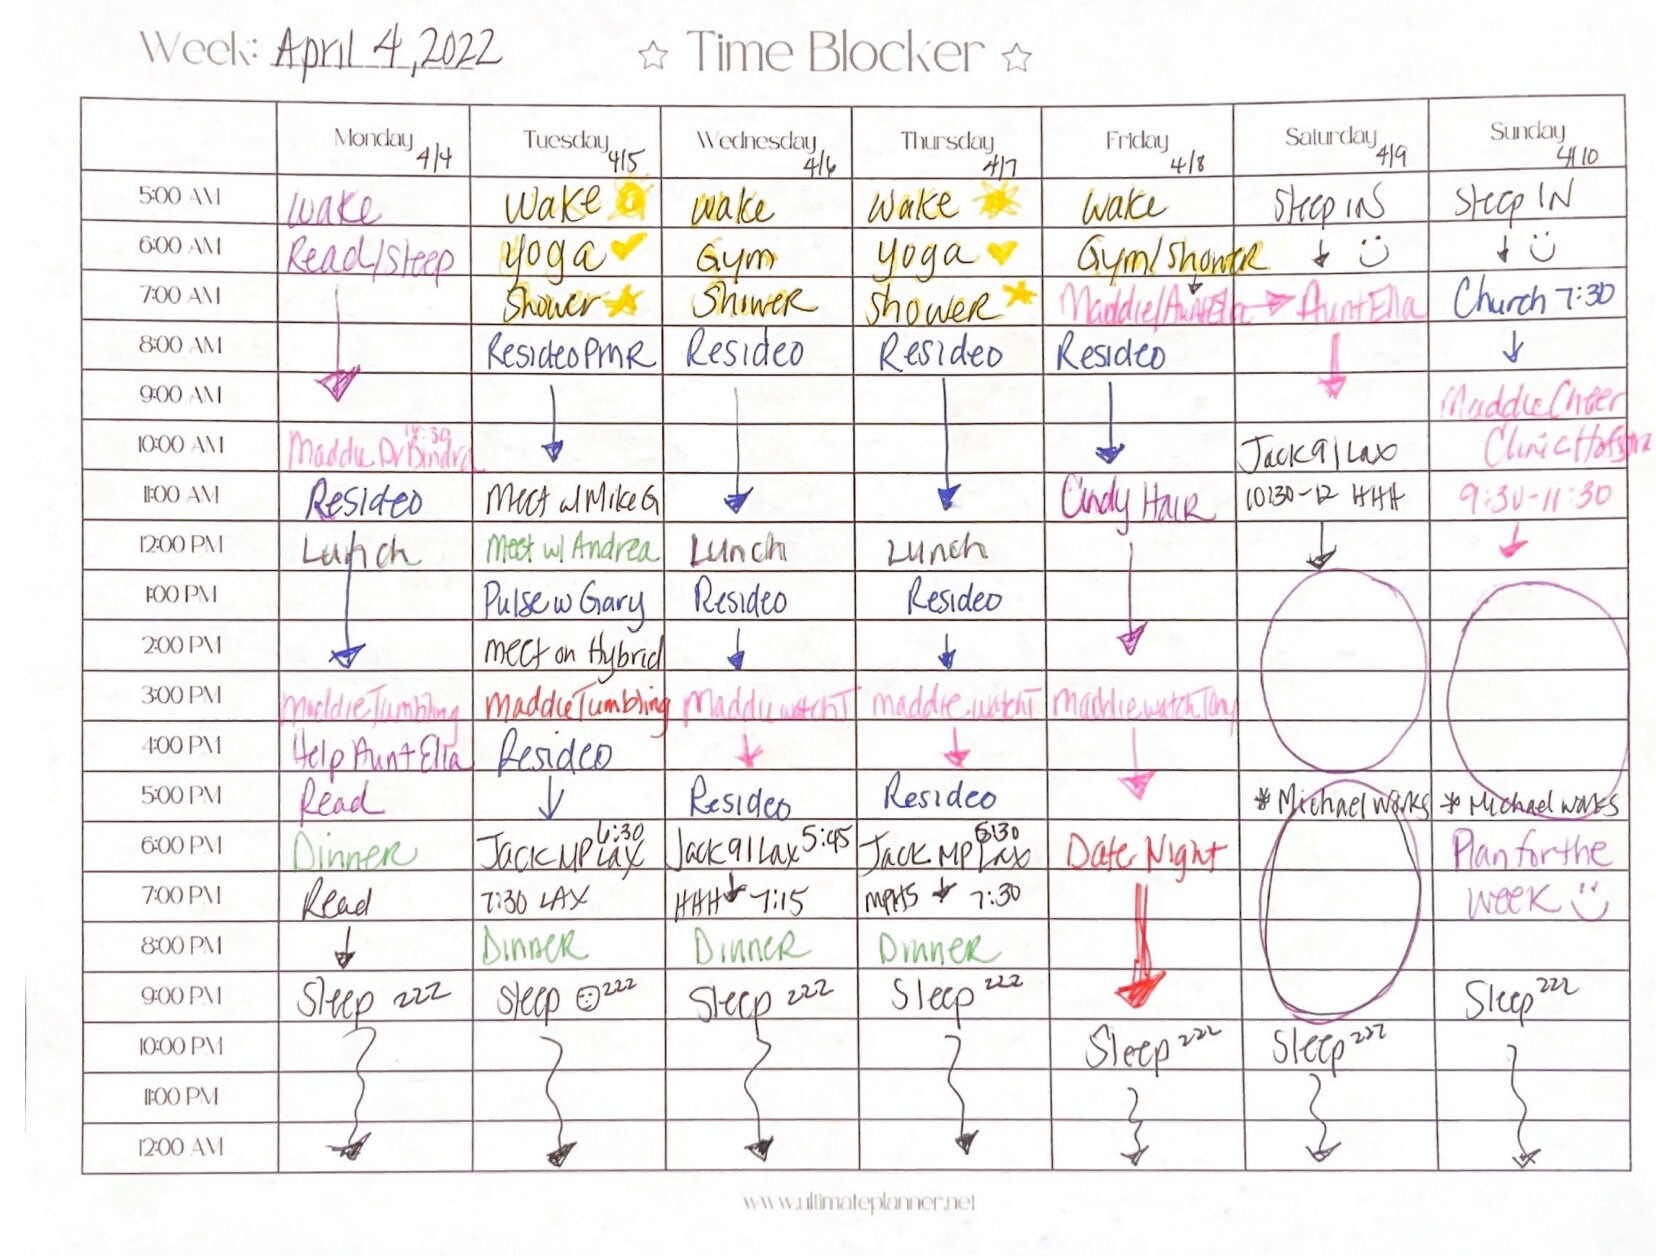 Week: April 4, 2022 ☆ Time Blocker ☆
Monday 4/4 Tuesday 4/5 Wednesday 4/6 Thursday 4/7 Friday 4/8 Saturday 4/9 Sunday 4/10
5:00 AM wake Wake wake Wake wake Sleep iNS Sleep IN
6:00 AM Read/Sleep Yoga Gym Yoga Gym/Shower
7:00 AM Shower Shower Shower Maddie/Aunt Ella Aunt Ella Church 7:30
8:00 AM Resideo PMR Resideo Resideo Resideo
9:00 AM Maddie Cheer
10:00 AM Maddie Dr Bindra Jack 91 Lax Clinic Hofstra
11:00 AM Resideo Meet w/ Mike G Cindy Hair 10:30-12 HHH 9:30-11:30
12:00 PM Lunch Meet w/ Andrea Lunch Lunch
1:00 PM Pulse w Gary Resideo Resideo
2:00 PM meet on Hybrid
3:00 PM Maddie Tumbling Maddie Tumbling Maddie watch T maddie watch T Maddie watch Tony
4:00 PM Help Aunt Ella Resideo
5:00 PM Read Resideo Resideo * Michael works * Michael works
6:00 PM Dinner Jack MP Lax 6:30 Jack 91 Lax 5:45 Jack MP Lax Date Night Plan for the
7:00 PM Read 7:30 LAX HHH 7:15 MPHS 7:30 week
8:00 PM Dinner Dinner Dinner
9:00 PM Sleep zzz Sleep zzz Sleep zzz Sleep zzz Sleep zzz
10:00 PM Sleep zzz Sleep zzz
11:00 PM
12:00 AM
www.ultimateplanner.net